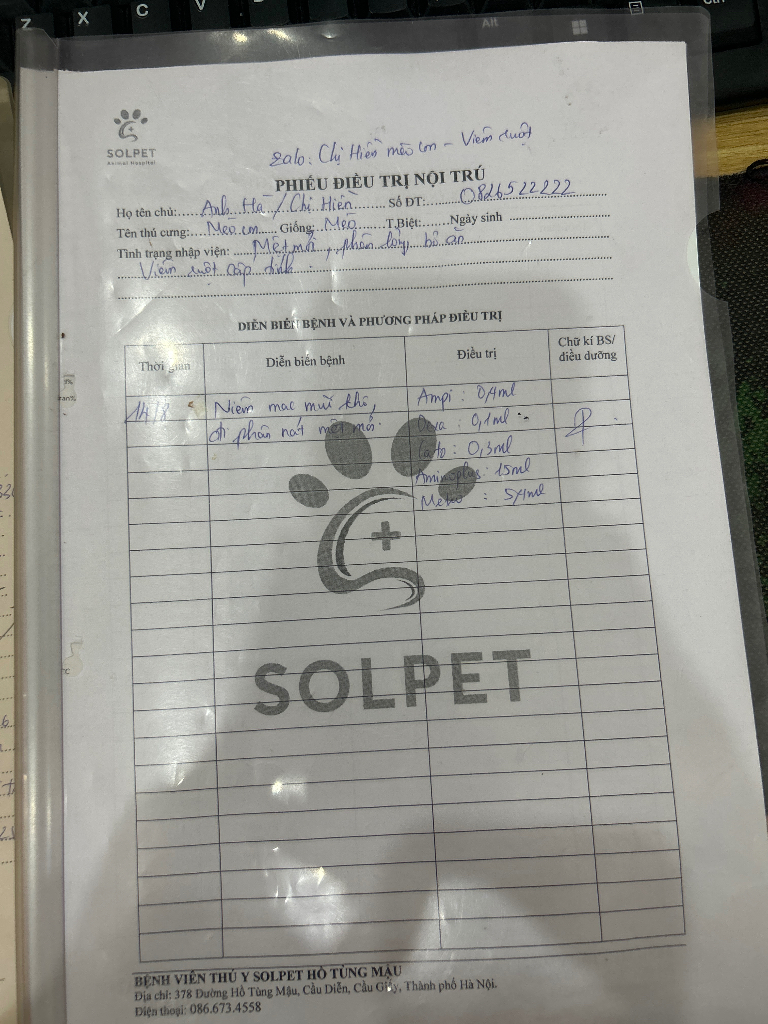 Z X C V Alt Ctrl
SOLPET
Animal Hospital
Zalo: Chị Hiền mèo con - Viêm ruột
PHIẾU ĐIỀU TRỊ NỘI TRÚ
Họ tên chủ: Anh Hà / Chị Hiền Số ĐT: 0826522222
Tên thú cưng: Mèo con Giống: Mèo T.Biệt: Ngày sinh
Tình trạng nhập viện: Mệt mỏi, phân lỏng, bỏ ăn
Viêm ruột cấp tính
DIỄN BIẾN BỆNH VÀ PHƯƠNG PHÁP ĐIỀU TRỊ
Thời gian Diễn biến bệnh Điều trị Chữ kí BS/ điều dưỡng
14/8 Niêm mạc mũi khô, Ampi: 0,4ml
đi phân nát mệt mỏi. : 0,1ml
Cato: 0,3ml
Aminoplus: 15ml
: 5,4ml
SOLPET
BỆNH VIỆN THÚ Y SOLPET HỒ TÙNG MẬU
Địa chỉ: 378 Đường Hồ Tùng Mậu, Cầu Diễn, Cầu Giấy, Thành phố Hà Nội.
Điện thoại: 086.673.4558